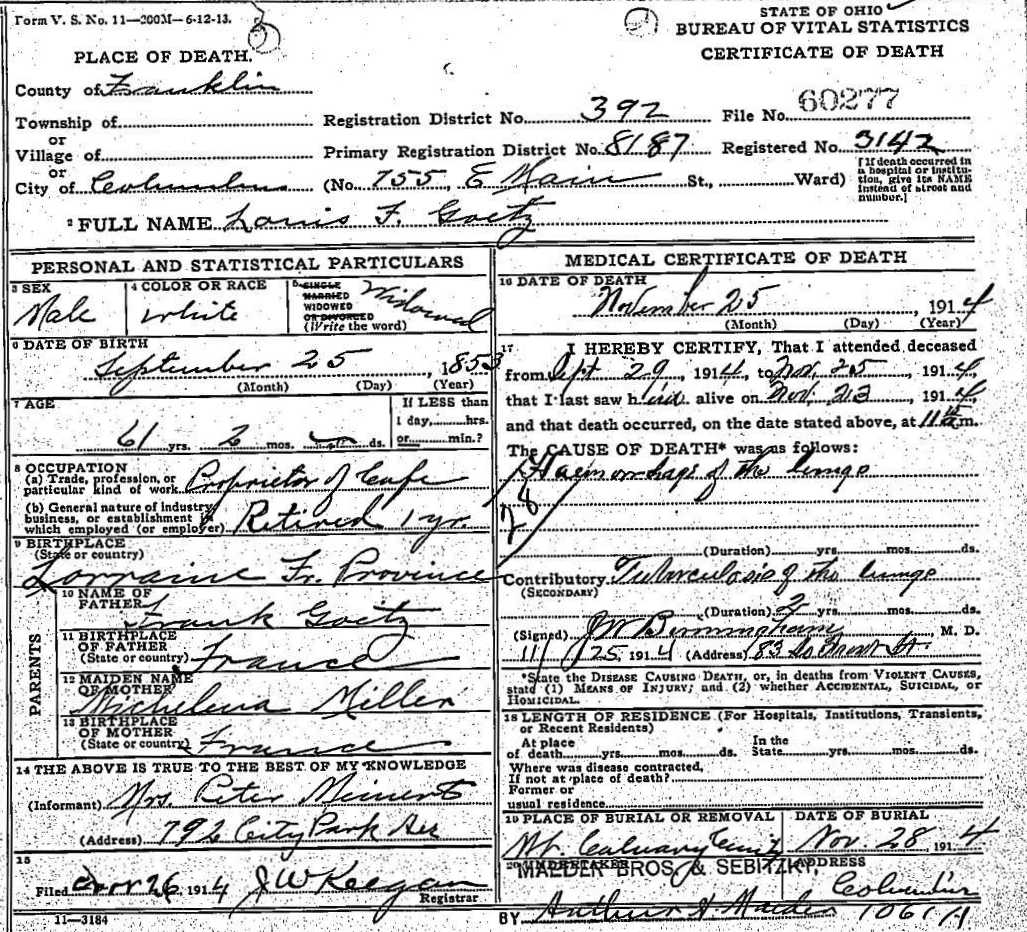 Form V. S. No. 11—200M—6-12-13.
STATE OF OHIO
BUREAU OF VITAL STATISTICS
CERTIFICATE OF DEATH
PLACE OF DEATH.
County of Franklin
Township of
or
Village of
or
City of Columbus
Registration District No. 392 File No. 60277
Primary Registration District No. 8187 Registered No. 3142
(No. 755, E Main St., Ward)
[If death occurred in
a hospital or institu-
tion, give its NAME
instead of street and
number.]
2 FULL NAME Louis F. Goetz
PERSONAL AND STATISTICAL PARTICULARS
3 SEX
Male
4 COLOR OR RACE
White
5 SINGLE
MARRIED
WIDOWED
OR DIVORCED
(Write the word)
Widowed
6 DATE OF BIRTH
September 25, 1853
(Month) (Day) (Year)
7 AGE
61 yrs. 2 mos. ds.
If LESS than
1 day,......hrs.
or......min.?
8 OCCUPATION
(a) Trade, profession, or
particular kind of work Proprietor of Cafe
(b) General nature of industry,
business, or establishment in
which employed (or employer) Retired 1 yr.
9 BIRTHPLACE
(State or country)
Lorraine Fr. Province
PARENTS
10 NAME OF
FATHER
Frank Goetz
11 BIRTHPLACE
OF FATHER
(State or country) France
12 MAIDEN NAME
OF MOTHER
Michelena Miller
13 BIRTHPLACE
OF MOTHER
(State or country) France
14 THE ABOVE IS TRUE TO THE BEST OF MY KNOWLEDGE
(Informant) Mrs. Peter
(Address) 792 City Park Ave
15
Filed Nov 26, 1914 J W Keegan
Registrar
11—3184
MEDICAL CERTIFICATE OF DEATH
16 DATE OF DEATH
November 25, 1914
(Month) (Day) (Year)
17 I HEREBY CERTIFY, That I attended deceased
from Sept 29, 1914, to Nov. 25, 1914,
that I last saw him alive on Nov. 23, 1914,
and that death occurred, on the date stated above, at 11 m.
The CAUSE OF DEATH* was as follows:
Haemorrhage of the lungs
28
(Duration) yrs. mos. ds.
Contributory Tuberculosis of the lungs
(SECONDARY)
(Duration) 2 yrs. mos. ds.
(Signed) J W Birmingham, M. D.
11/25, 1914 (Address) 83 So Front St.
*State the DISEASE CAUSING DEATH, or, in deaths from VIOLENT CAUSES,
state (1) MEANS OF INJURY; and (2) whether ACCIDENTAL, SUICIDAL, or
HOMICIDAL.
18 LENGTH OF RESIDENCE (For Hospitals, Institutions, Transients,
or Recent Residents)
At place
of death......yrs......mos......ds.
In the
State......yrs......mos......ds.
Where was disease contracted,
If not at place of death?
Former or
usual residence
19 PLACE OF BURIAL OR REMOVAL
Mt. Calvary Cem
DATE OF BURIAL
Nov. 28, 1914
20 UNDERTAKER
MAEDER BROS. & SEBITZKY,
ADDRESS
Columbus
BY Arthur J. Maeder 1061 A